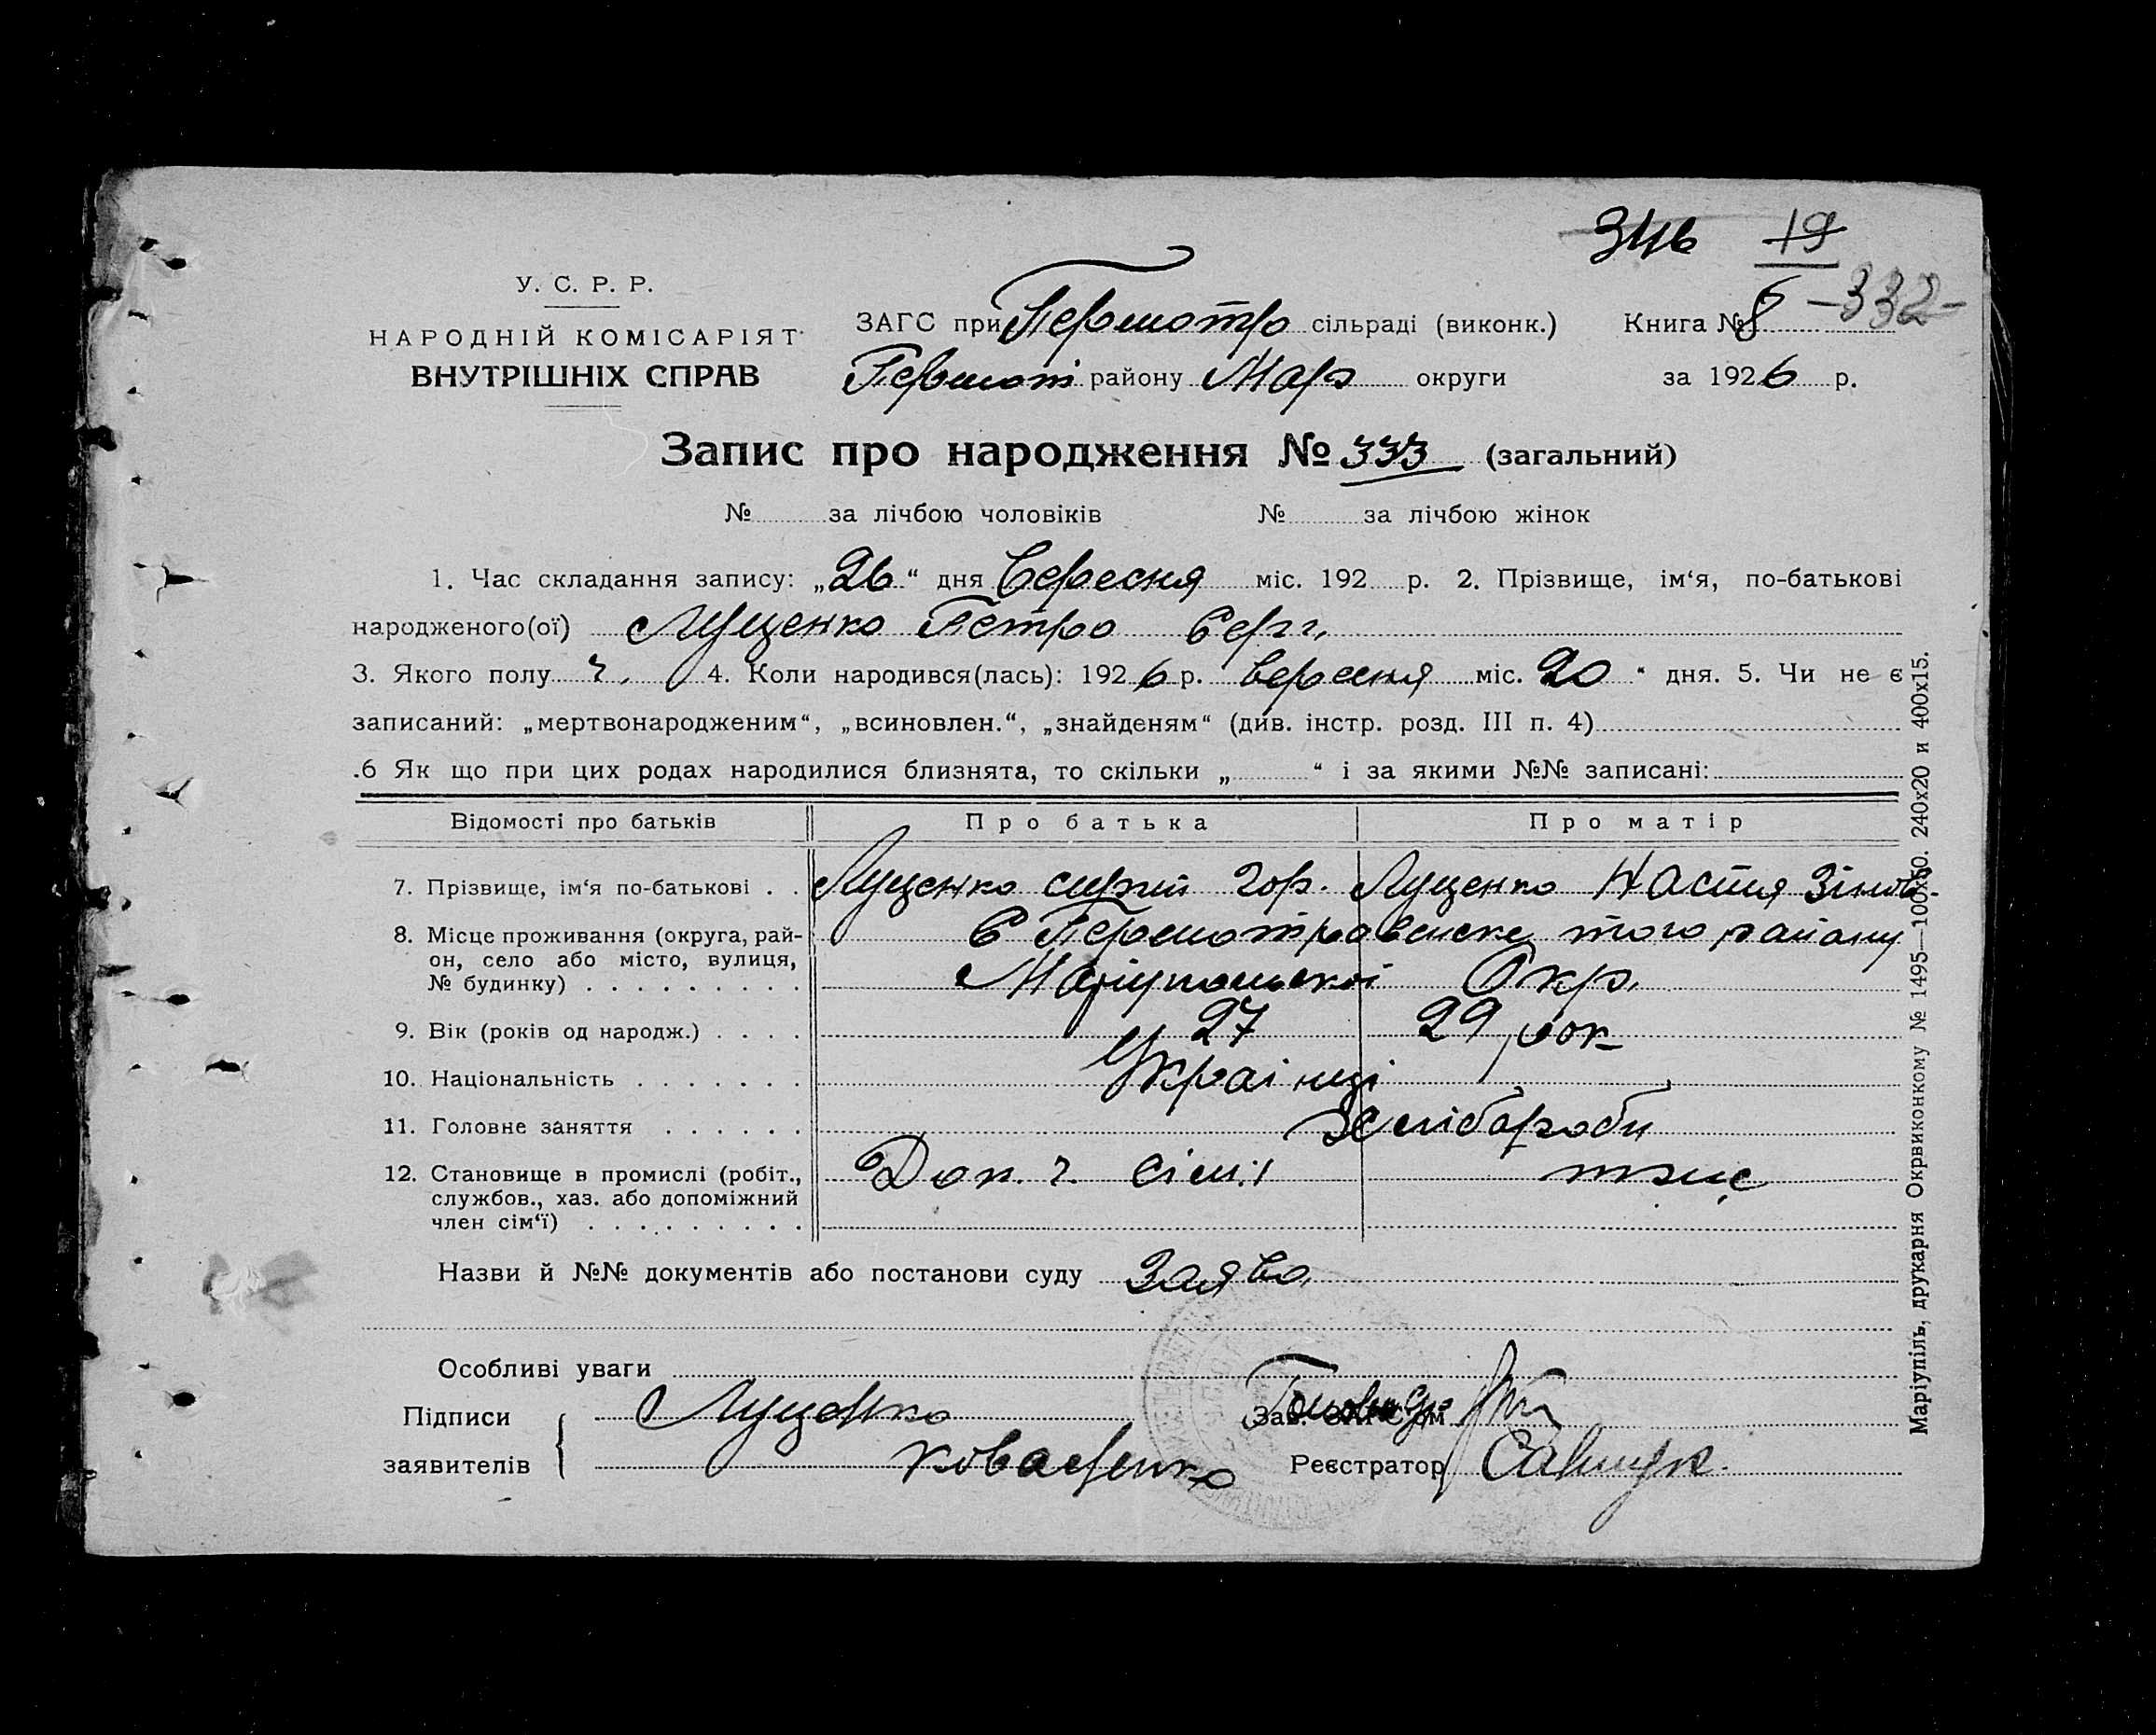 346 19
У. С. Р. Р.
НАРОДНІЙ КОМІСАРІЯТ
ВНУТРІШНІХ СПРАВ
ЗАГС при Першотро сільраді (виконк.) Книга № 8 -332-
Першот району Мар округи за 1926 р.
Запис про народження № 333 (загальний)
№ за лічбою чоловіків № за лічбою жінок
1. Час складання запису: „26“ дня Вересня міс. 192 р. 2. Прізвище, ім‘я, по-батькові
народженого(ої) Луценко Петро Серг.
3. Якого полу ч. 4. Коли народився(лась): 1926 р. вересня міс. 20 “ дня. 5. Чи не є
записаний: „мертвонародженим“, „всиновлен.“, „знайденям“ (див. інстр. розд. III п. 4)
.6 Як що при цих родах народилися близнята, то скільки „ “ і за якими №№ записані:
Відомості про батьків Про батька Про матір
7. Прізвище, ім‘я по-батькові . . Луценко Сергій Гор. Луценко Настя Зінов.
8. Місце проживання (округа, рай-
он, село або місто, вулиця,
№ будинку) . . . . . . . . .
С Першотравенске того району
Маріупольскої Окр.
9. Вік (років од народж.) . . . . 27 29 рок
10. Національність . . . . . . . Украінці
11. Головне заняття . . . . . . Хлібороби
12. Становище в промислі (робіт.,
службов., хаз. або допоміжний
член сім‘ї) . . . . . . . . .
Доп. ч. сімі теж
Назви й №№ документів або постанови суду Заява
Особливі уваги
Підписи
заявителів
Луценко
Коваленко
Зав. ЗАГС‘ом
Реєстратор Савчук
Маріупіль, друкарня Окрвиконкому № 1495—100х50. 240х20 и 400х15.